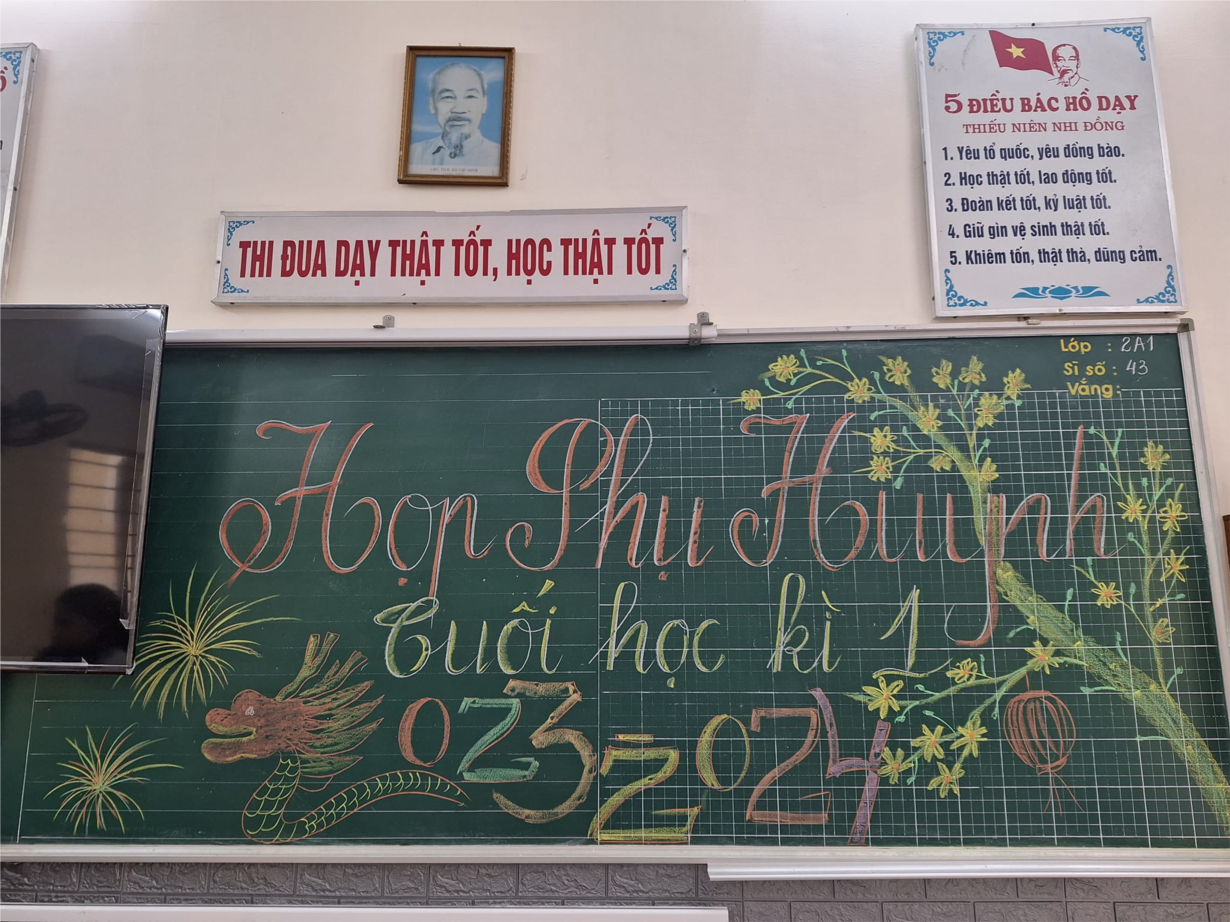 5 ĐIỀU BÁC HỒ DẠY
THIẾU NIÊN NHI ĐỒNG
1. Yêu tổ quốc, yêu đồng bào.
2. Học thật tốt, lao động tốt.
3. Đoàn kết tốt, kỷ luật tốt.
4. Giữ gìn vệ sinh thật tốt.
5. Khiêm tốn, thật thà, dũng cảm.
THI ĐUA DẠY THẬT TỐT, HỌC THẬT TỐT
Lớp : 2A1
Sĩ số : 43
Vắng:
Họp Phụ Huynh
Cuối học kì 1
023-2024